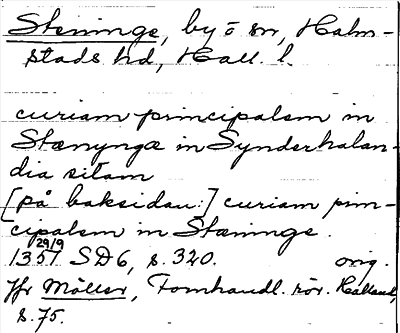 Steninge, by o sn, Halm-
stads hd, Hall. l.
curiam principalem in
Stænyngæ in Synderhalan-
dia sitam
[på baksidan:] curiam prin-
cipalem in Stæninge.
1357 29/9 SD 6, s. 320. orig.
Jfr Möller, Fornhandl. rör. Halland,
s. 75.